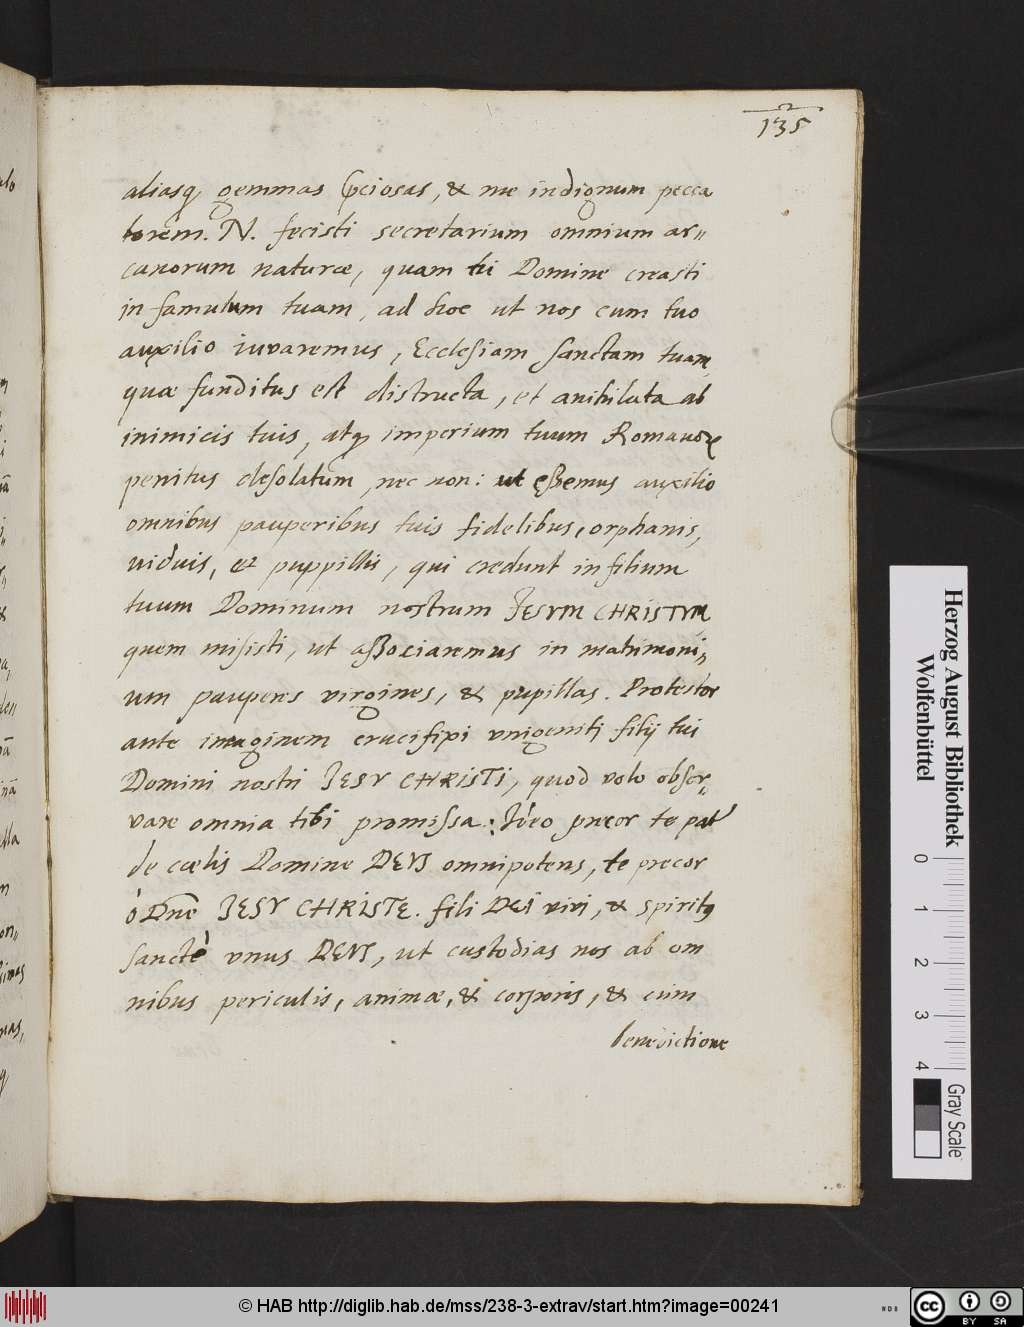 135
aliasq; gemmas p̄ciosas, & me indignum pecca
torem. N. fecisti secretarium omnium ar„
canorum naturæ, quam tu Domine creasti
in famulum tuam, ad hoc ut nos cum tuo
auxilio iuvaremus, Ecclesiam sanctam tuam
quæ funditus est distructa, et anihilata ab
inimicis tuis, atq; imperium tuum Romanorꝝ
penitus desolatum, nec non: ut eßemus auxilio
omnibus pauperibus tuis fidelibus, orphanis,
viduis, et puppillis, qui credunt in filium
tuum Dominum nostrum JESVM CHRISTVM
quem misisti, ut aßociaremus in matrimoni„
um pauperes virgines, & pupillas. Protestor
ante imaginem crucifixi vnigeniti filij tui
Domini nostri JESV CHRISTI, quod volo obser„
vare omnia tibi promissa: Ideo precor te pat
de cœlis Domine DEVS omnipotens, te precor
ó Dn̄e JESV CHRISTE. fili DEI vivi, & spiritq
sancte vnus DEVS, ut custodias nos ab om
nibus periculis, animæ, & corporis, & cum
benedictione
Herzog August Bibliothek
Wolfenbüttel
0 1 2 3 4
Gray Scale
© HAB http://diglib.hab.de/mss/238-3-extrav/start.htm?image=00241
cc BY SA